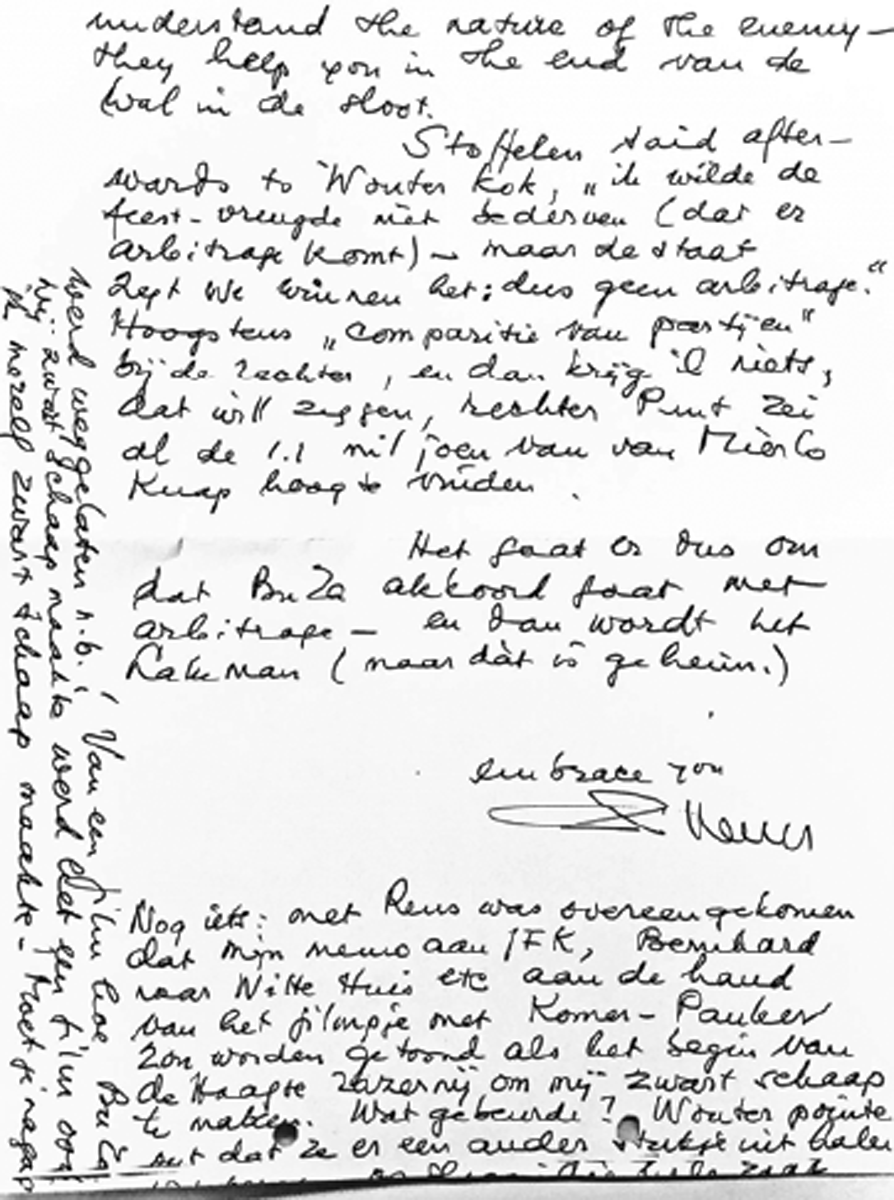 understand the nature of the enemy—
they help you in the end van de
wal in de sloot.
Stoffelen said after-
wards to Wouter Kok, „ik wilde de
feest-vreugde niet bederven (dat er
arbitrage komt) – maar de staat
zegt we winnen het: dus geen arbitrage."
Hoogstens „comparitie van partijen"
bij de rechter, en dan krijg ik niets,
dat will zeggen, rechter Punt zei
al de 1.1 miljoen van van Mierlo
knap hoog te vinden.
Het gaat er dus om
dat BuZa akkoord gaat met
arbitrage – en dan wordt het
Lakeman (maar dàt is geheim.)
embrace you
Nog iets: met Rens was overeengekomen
dat mijn memo aan JFK, Bernhard
naar Witte Huis etc aan de hand
van het filmpje met Komer-Pauker
zou worden getoond als het begin van
de Haagse razernij om mij zwart schaap
te maken. Wat gebeurde? Wouter pointe
out dat ze er een ander stukje uit halen
werd weggelaten n.b.! Van een film hoe BuZa
mij zwart schaap maakte werd het een film over
ik mezelf zwart schaap maakte – Moet je nagaan